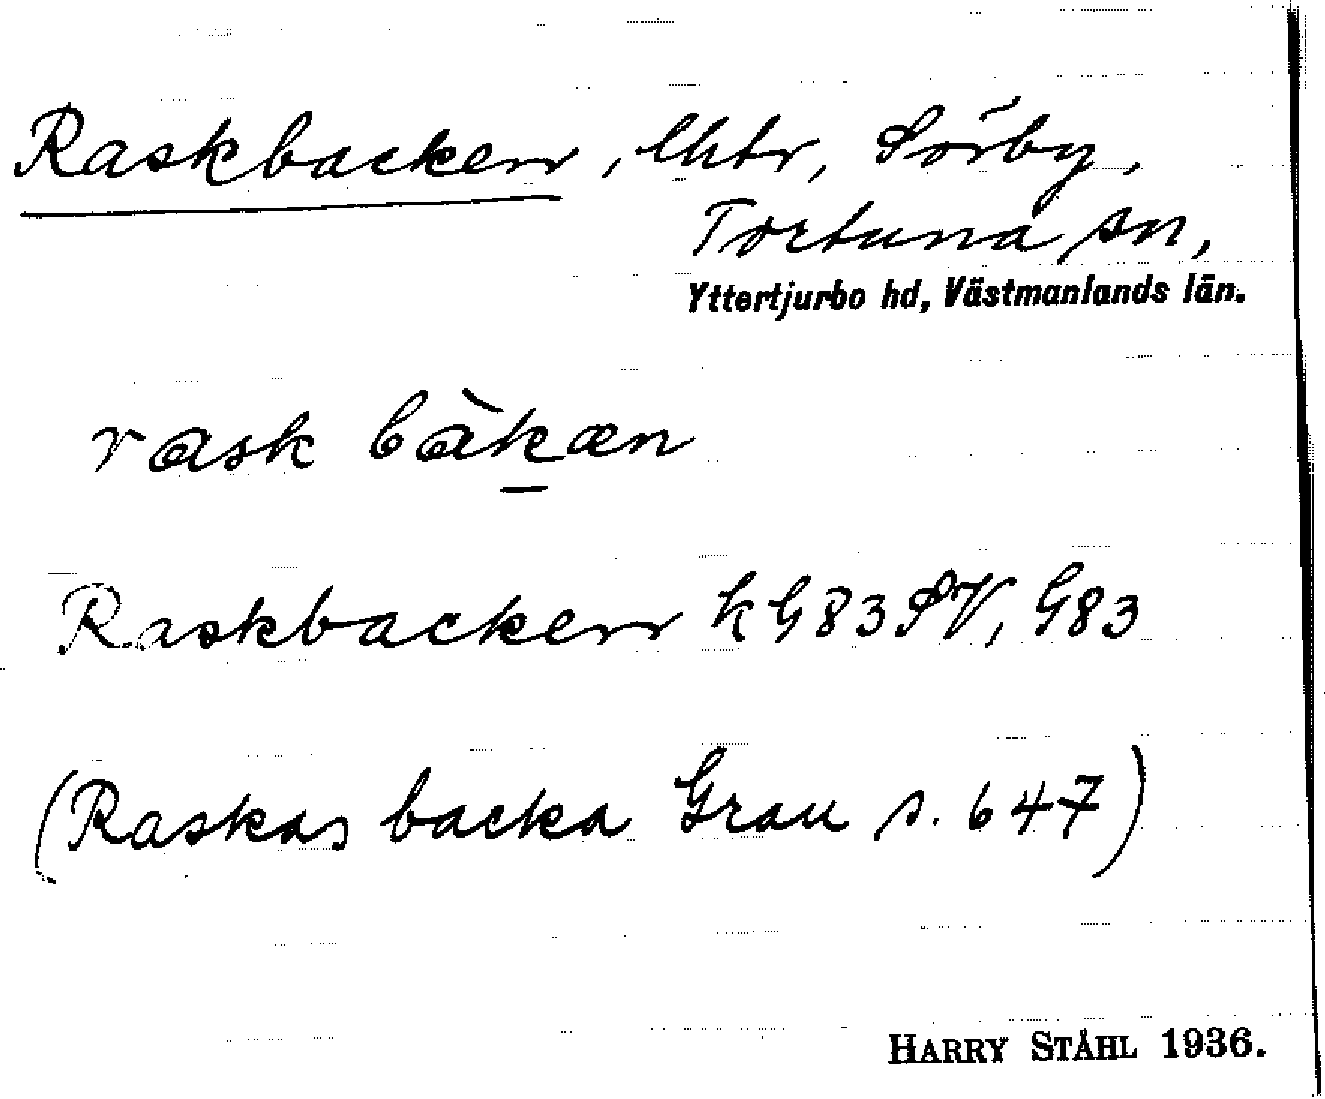 Raskbacken, lhtr, Sörby,
Tortuna sn,
Yttertjurbo hd, Västmanlands län.
rask bàkæn
Raskbacken k G83 SV, G83
(Raskas backa Grau s. 647)
HARRY STÅHL 1936.